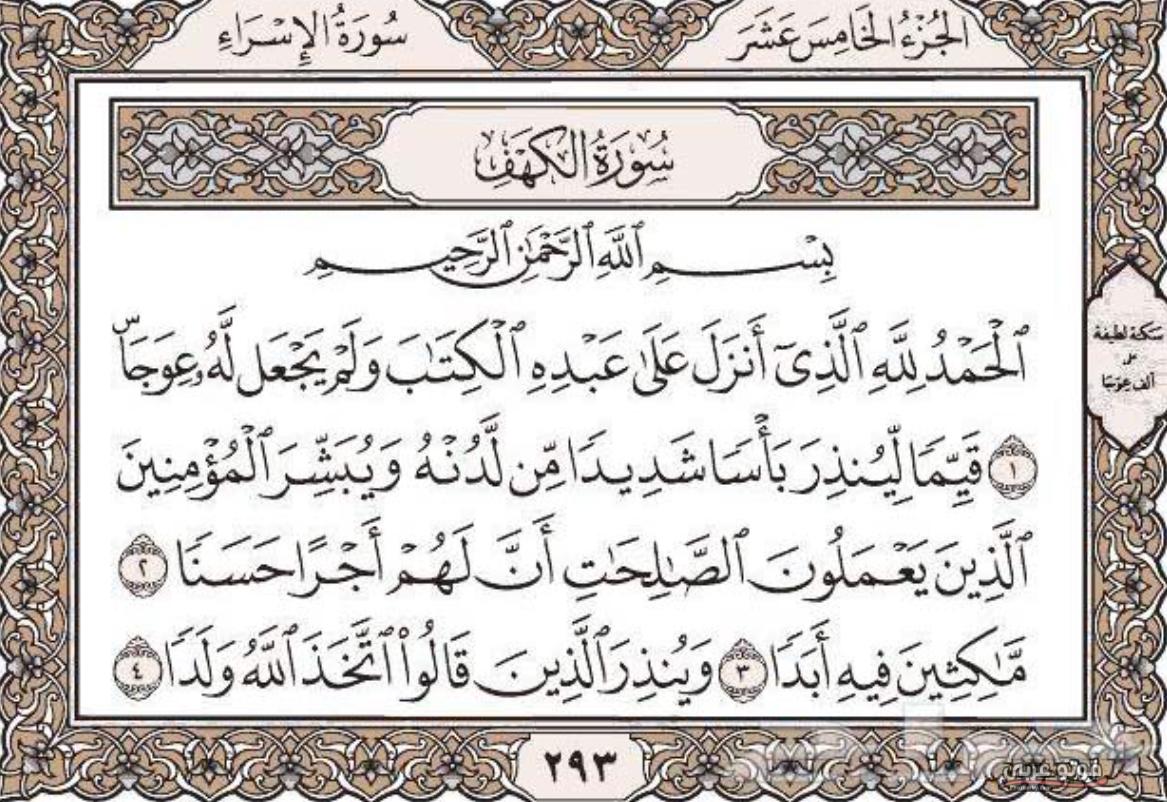 الجُزْءُ الخَامِسَ عَشَرَ
سُورَةُ الإِسْرَاءِ
سُورَةُ الكَهْفِ
بِسْمِ ٱللَّهِ ٱلرَّحْمَٰنِ ٱلرَّحِيمِ
ٱلْحَمْدُ لِلَّهِ ٱلَّذِىٓ أَنزَلَ عَلَىٰ عَبْدِهِ ٱلْكِتَٰبَ وَلَمْ يَجْعَل لَّهُۥ عِوَجَاۜ
١ قَيِّمًا لِّيُنذِرَ بَأْسًا شَدِيدًا مِّن لَّدُنْهُ وَيُبَشِّرَ ٱلْمُؤْمِنِينَ
ٱلَّذِينَ يَعْمَلُونَ ٱلصَّٰلِحَٰتِ أَنَّ لَهُمْ أَجْرًا حَسَنًا ٢
مَّٰكِثِينَ فِيهِ أَبَدًا ٣ وَيُنذِرَ ٱلَّذِينَ قَالُوا۟ ٱتَّخَذَ ٱللَّهُ وَلَدًا ٤
سكتة لطيفة
على
ألف عِوَجَا
٢٩٣
فوتو عربي